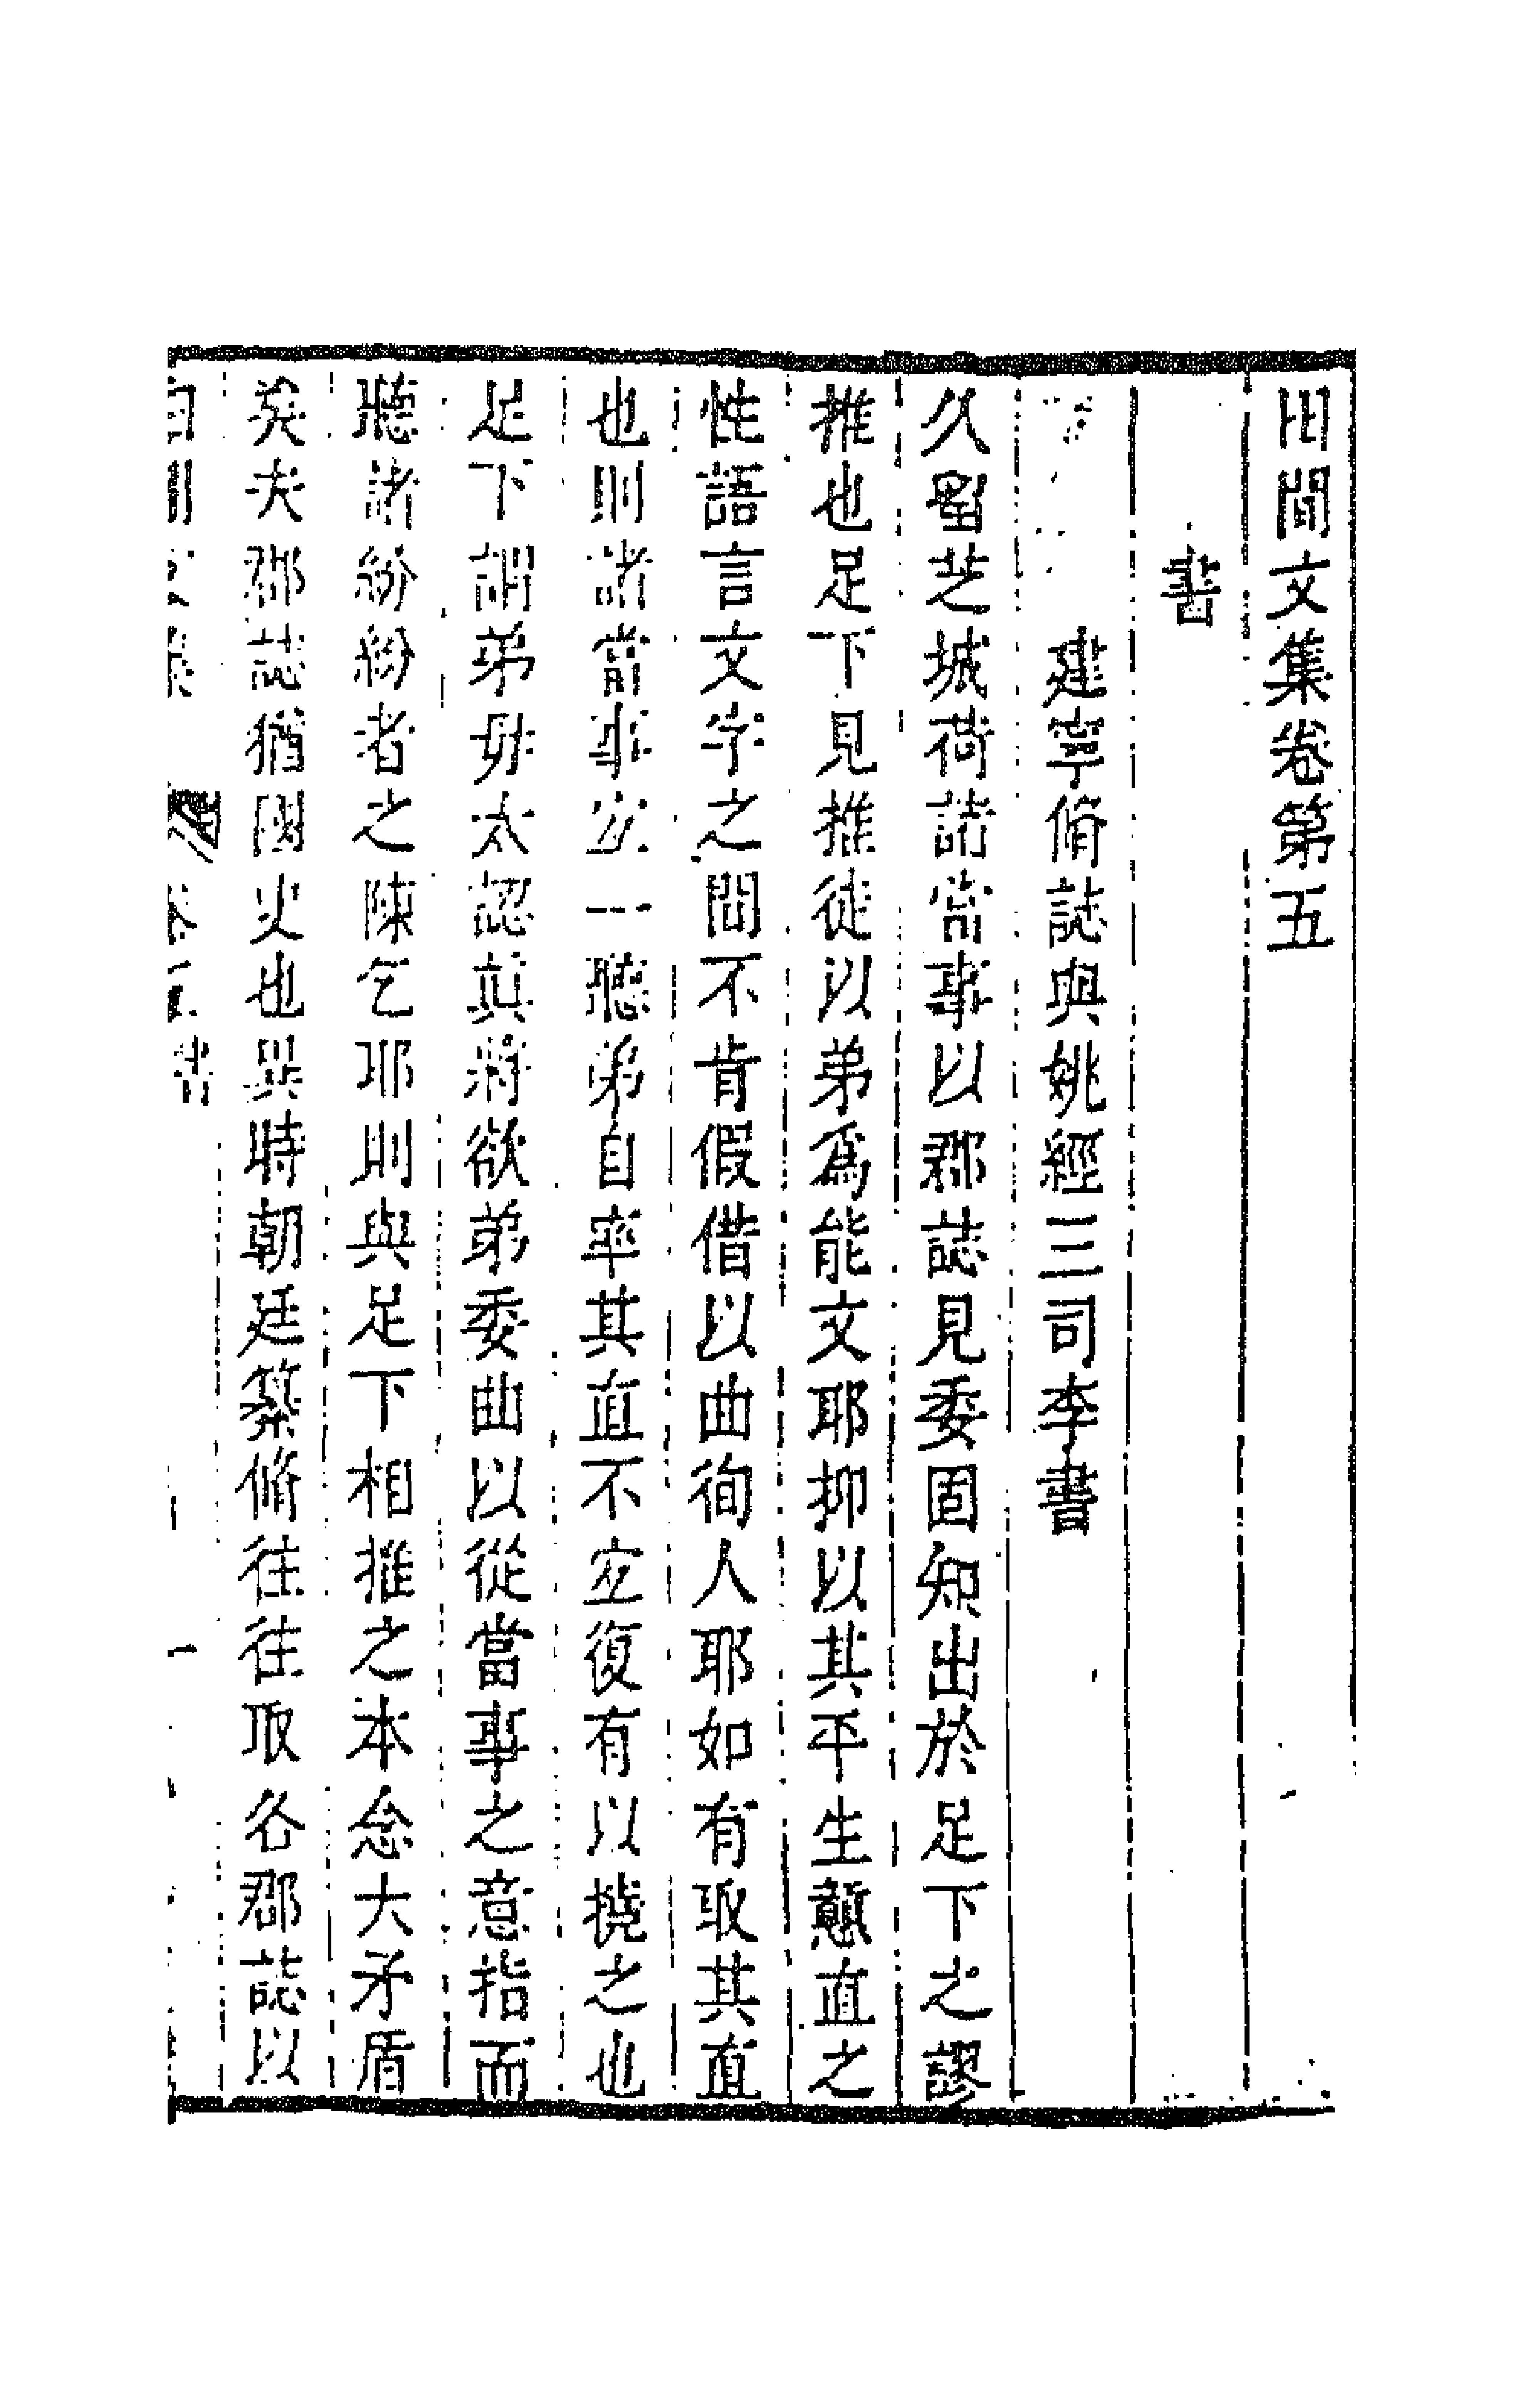 田間文集卷第五
書
建寧脩誌與姚經三司李書
久畱芝城荷諸當事以郡誌見委固知出於足下之謬
推也足下見推徒以弟爲能文耶抑以其平生戇直之
性語言文字之間不肯假借以曲徇人耶如有取其直
也則諸當事宜一聽弟自率其直不宜復有以撓之也
足下謂弟毋太認眞將欲弟委曲以從當事之意指而
聽諸紛紛者之陳乞耶則與足下相推之本念大矛盾
矣夫郡誌猶國史也異時朝廷纂脩往往取各郡誌以